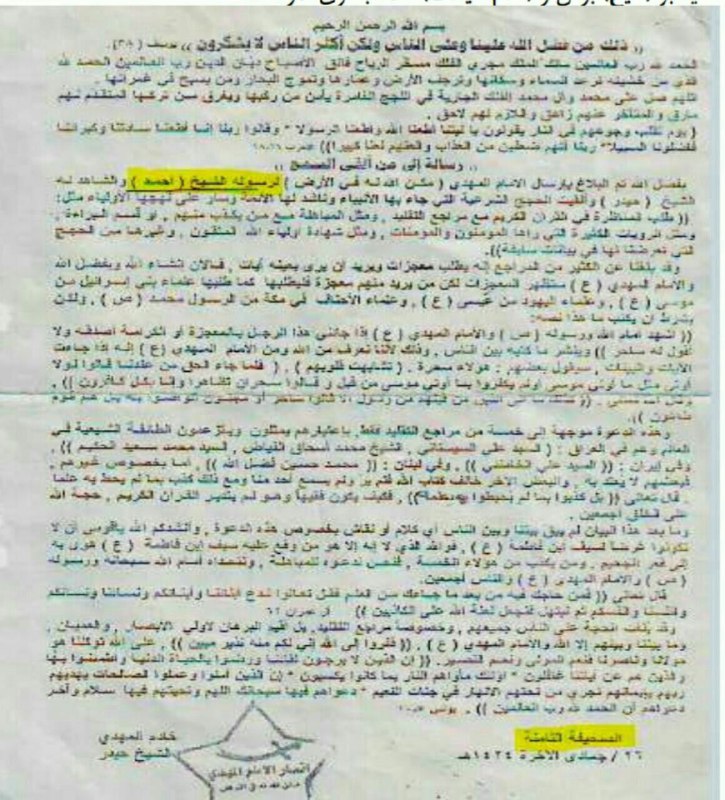 بسم الله الرحمن الرحيم
(( ذلك من فضل الله علينا وعلى الناس ولكن أكثر الناس لا يشكرون )) يوسف (٣٨)
الحمد لله رب العالمين مالك الملك مجري الفلك مسخر الرياح فالق الاصباح ديان الدين رب العالمين الحمد لله
الذي من خشيته ترعد السماء وسكانها وترجف الأرض وعمارها وتموج البحار ومن يسبح في غمراتها .
اللهم صل على محمد وآل محمد الفلك الجارية في اللجج الغامرة يأمن من ركبها ويغرق من تركها المتقدم لهم
مارق والمتأخر عنهم زاهق واللازم لهم لاحق .
{ يوم تقلب وجوههم في النار يقولون يا ليتنا أطعنا الله وأطعنا الرسولا * وقالوا ربنا إنا أطعنا سادتنا وكبراءنا
فأضلونا السبيلا * ربنا آتهم ضعفين من العذاب والعنهم لعنا كبيرا }
.. رسالة إلى من ألقى السمع ..
بفضل الله تم البلاغ بإرسال الامام المهدي ( مكن الله له في الأرض ) لرسوله الشيخ ( احمد ) والشاهد له
الشيخ ( حيدر ) وألقيت الحجج الشرعية التي جاء بها الأنبياء وناشد لها الأئمة وسار على نهجها الأولياء مثل:
(( طلب المناظرة في القرآن الكريم مع مراجع التقليد , ومثل المباهلة مع من يكذب منهم , أو قسم البراءة ,
ومثل الرؤيات الكثيرة التي راها المؤمنون والمؤمنات , ومثل شهادة اولياء الله المتقون , وغيرها من الحجج
التي تعرضنا لها في بيانات سابقة)).
وقد بلغنا عن الكثير من المراجع إنه يطلب معجزات ويريد أن يرى بعينه آيات , فالآن إنشاء الله وبفضل الله
والامام المهدي ( ع ) ستظهر المعجزات لكن من يريد منهم معجزة فليطلبها كما طلبها علماء بني إسرائيل من
موسى ( ع ) , وعلماء اليهود من عيسى ( ع ) , وعلماء الأحناف في مكة من الرسول محمد ( ص ) , ولكن
بشرط أن يكتب ما هذا نصه:
(( اشهد امام الله ورسوله ( ص ) والامام المهدي ( ع ) إذا جاءني هذا الرجل بالمعجزة أو الكرامة اصدقه ولا
اقول له ساحر )) وينشر ما كتبه بين الناس , وذلك لأننا نعرف من الله ومن الامام المهدي (ع) إنه إذا جاءت
الآيات والبينات , سيقول بعضهم : هؤلاء سحرة , ( تشابهت قلوبهم ) , ( فلما جاءهم الحق من عندنا قالوا لولا
أوتي مثل ما أوتي موسى أولم يكفروا بما أوتي موسى من قبل و قالوا سحران تظاهرا وإنا بكل كافرون )) ,
طاغون )).
وهذه الدعوة موجهة إلى خمسة من مراجع التقليد فقط, باعتبارهم يمثلون ويتزعمون الطائفة الشيعية في
العالم وهم في العراق : ( السيد علي السيستاني , الشيخ محمد أسحاق الفياض , السيد محمد سعيد الحكيم )) ,
وفي إيران : (( السيد علي الخامنئي )) , وفي لبنان : (( محمد حسين فضل الله )) , أما بخصوص غيرهم ,
فبعضهم لا يعتد به , والبعض الآخر خالف كتاب الله فلم يرَ ولم يسمع أحد منا ومع ذلك كذب بما لم يحط به علما
, قال تعالى (( بل كذبوا بما لم يحيطوا بعلمه)) , فكيف يكون فقيهاً وهو لم يتدبر القرآن الكريم , حجة الله
على الخلق أجمعين .
وما بعد هذا البيان لم يبق بيننا وبين الناس أي كلام أو نقاش بخصوص هذه الدعوة , وأنشدكم الله ياقومي أن لا
تكونوا غرضا لسيف ابن فاطمة ( ع ) , فوالله الذي لا إله إلا هو من وقع عليه سيف ابن فاطمة ( ع ) هوى به
إلى قعر الجحيم , ومن يكذب من هؤلاء الخمسة , فنحن ندعوه للمباهلة , ونتحداه أمام الله سبحانه ورسوله
( ص ) والامام المهدي ( ع ) والناس أجمعين.
قال تعالى (( فمن حاجك فيه من بعد ما جاءك من العلم فقل تعالوا ندع أبناءنا وأبناءكم ونساءنا ونساءكم
وأنفسنا وأنفسكم ثم نبتهل فنجعل لعنة الله على الكاذبين )) آل عمران ٦١
وما بيننا وبينهم إلا الله والامام المهدي ( ع ) , (( ففروا إلى الله إني لكم منه نذير مبين )) , على الله توكلنا هو
مولانا وناصرنا فنعم المولى ونعم النصير. (( إن الذين لا يرجون لقاءنا ورضوا بالحياة الدنيا واطمأنوا بها
والذين هم عن آياتنا غافلون * اولئك مأواهم النار بما كانوا يكسبون * إن الذين آمنوا وعملوا الصالحات يهديهم
ربهم بإيمانهم تجري من تحتهم الأنهار في جنات النعيم * دعواهم فيها سبحانك اللهم وتحيتهم فيها سلام وآخر
دعواهم أن الحمد لله رب العالمين )).
الصحيفة الثامنة
٢٦ / جمادى الآخرة / ١٤٢٤هـ
خادم المهدي
الشيخ حيدر
أنصار الامام المهدي